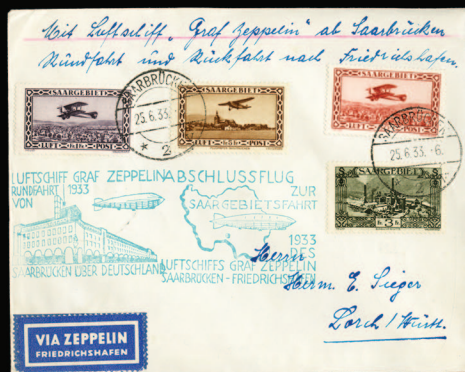 Mit Luftschiff "Graf Zeppelin" ab Saarbrücken
Rundfahrt und Rückfahrt nach Friedrichshafen.
SAARGEBIET
LUFT POST
SAARGEBIET
LUFT POST
SAARGEBIET
LUFT POST
SAARBRÜCKEN
25.6.33.
* 2
SAARBRÜCKEN
25.6.33. -6.
SAARGEBIET
3
LUFTSCHIFF GRAF ZEPPELIN
RUNDFAHRT 1933
VON
SAARBRÜCKEN ÜBER DEUTSCHLAND
ABSCHLUSSFLUG
ZUR
SAARGEBIETSFAHRT
1933
DES
LUFTSCHIFFS GRAF ZEPPELIN
SAARBRÜCKEN - FRIEDRICHSHAFEN
Herrn
Herm. E. Sieger
Lorch/Württ.
VIA ZEPPELIN
FRIEDRICHSHAFEN